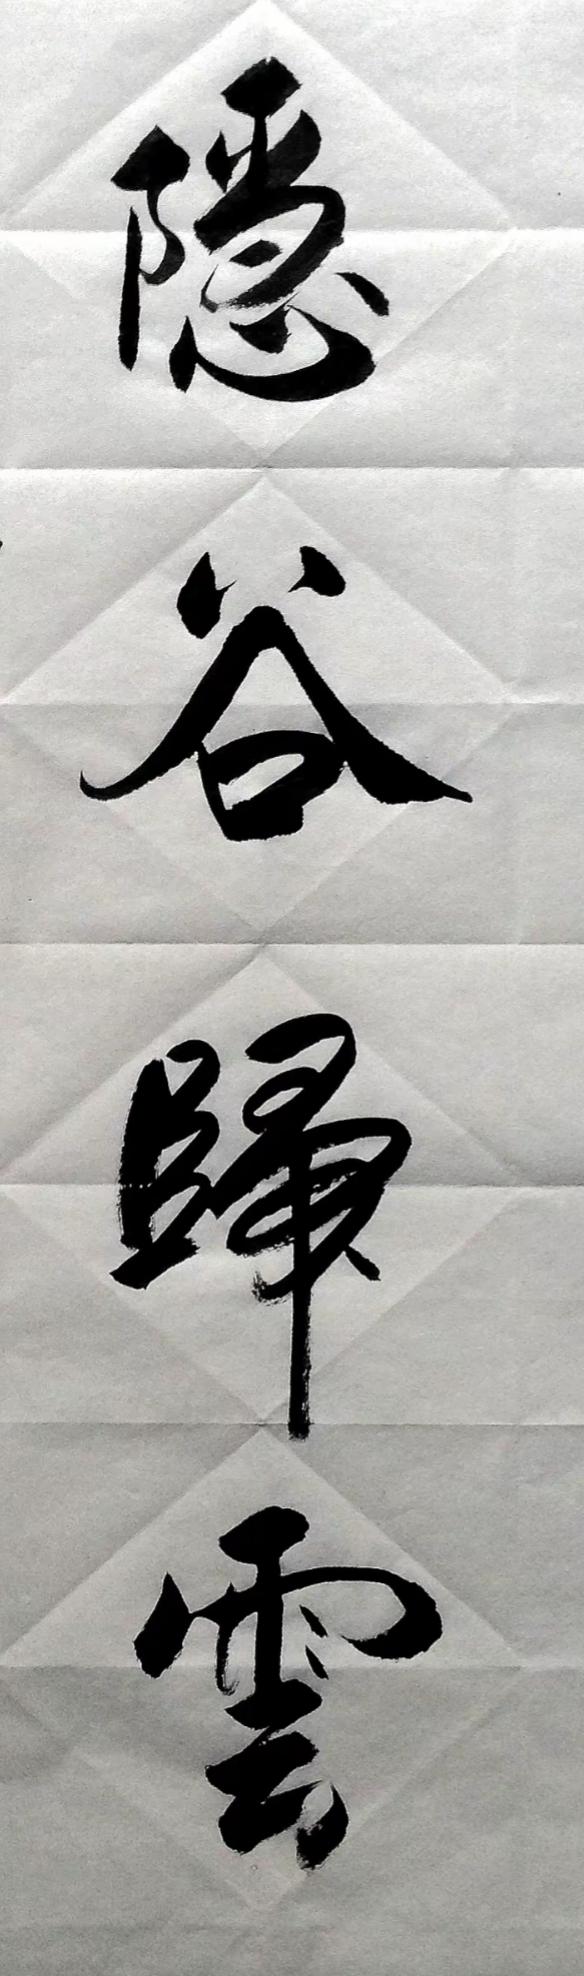 隱谷歸雲